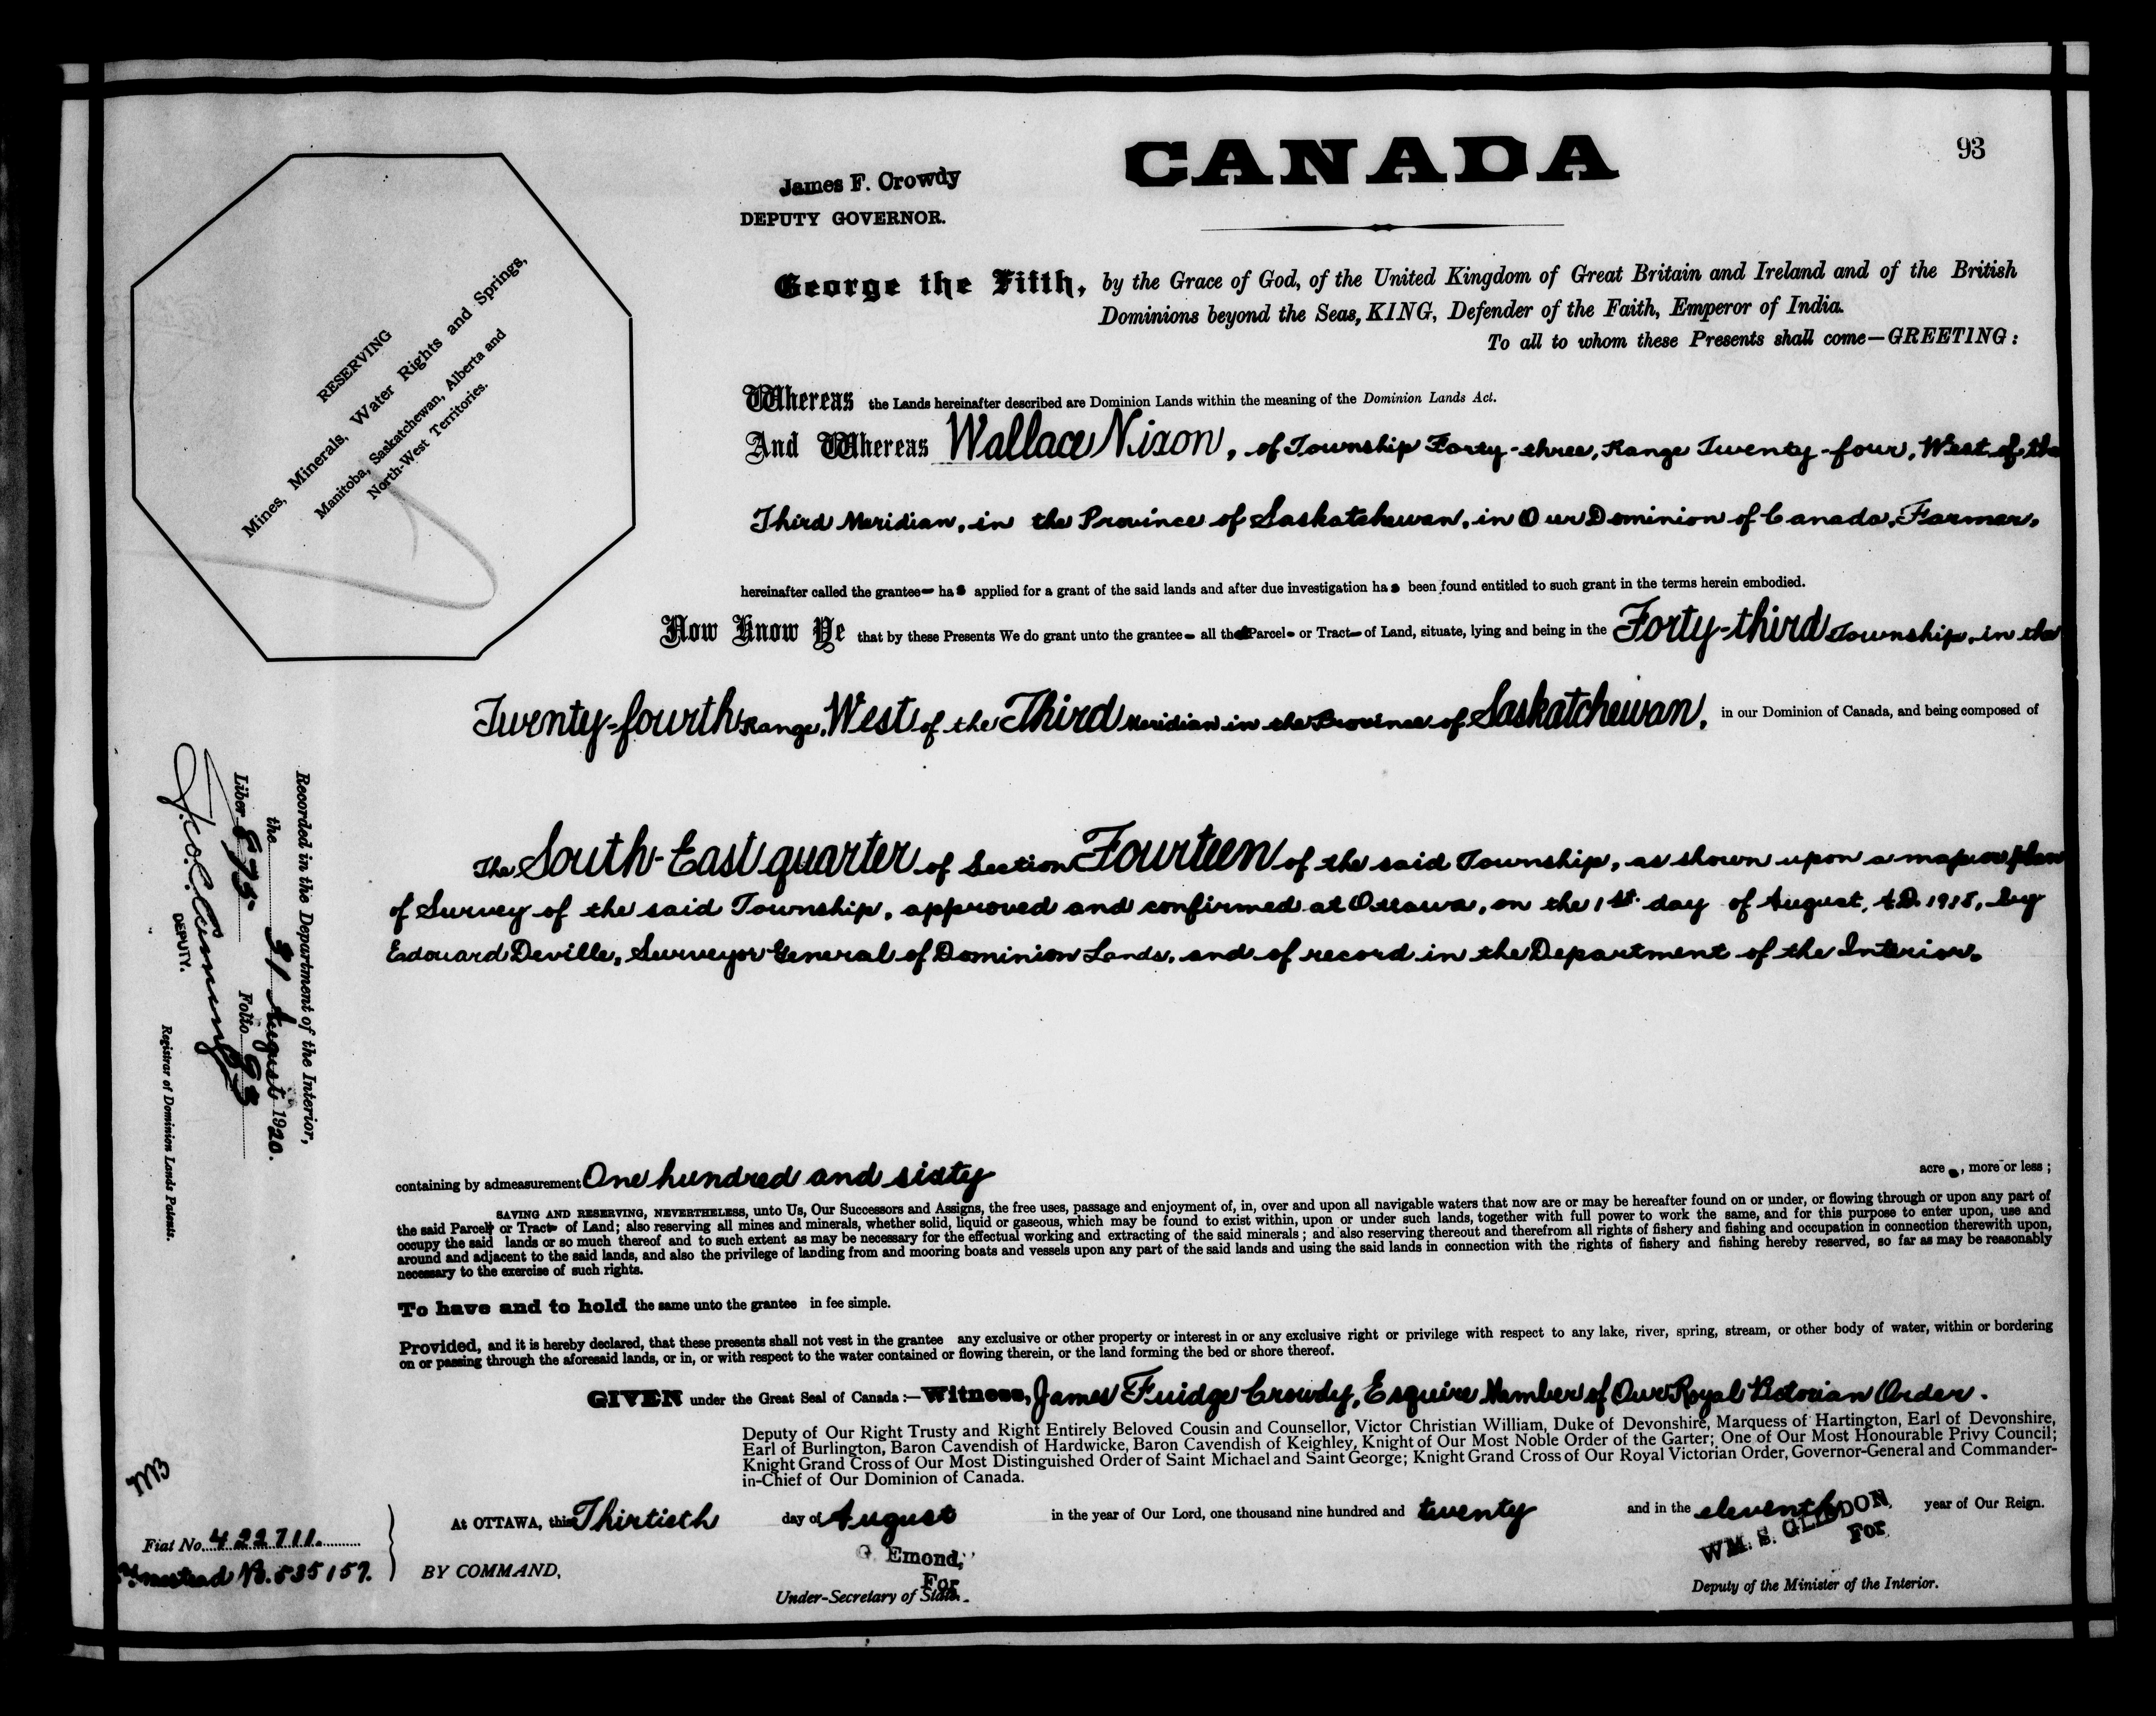 CANADA
93
James F. Crowdy
DEPUTY GOVERNOR.
RESERVING
Mines, Minerals, Water Rights and Springs,
Manitoba, Saskatchewan, Alberta and
North-West Territories.
George the Fifth, by the Grace of God, of the United Kingdom of Great Britain and Ireland and of the British
Dominions beyond the Seas, KING, Defender of the Faith, Emperor of India.
To all to whom these Presents shall come—GREETING:
Whereas the Lands hereinafter described are Dominion Lands within the meaning of the Dominion Lands Act.
And Whereas Wallace Nixon, of Township Forty-three, Range Twenty-four, West of the
Third Meridian, in the Province of Saskatchewan, in Our Dominion of Canada, Farmer,
hereinafter called the grantee- has applied for a grant of the said lands and after due investigation has been found entitled to such grant in the terms herein embodied.
Now Know Ye that by these Presents We do grant unto the grantee- all that Parcel- or Tract- of Land, situate, lying and being in the Forty-third Township, in the
Twenty-fourth Range, West of the Third Meridian in the Province of Saskatchewan, in our Dominion of Canada, and being composed of
The South-East quarter of Section Fourteen of the said Township, as shown upon a map or plan
of Survey of the said Township, approved and confirmed at Ottawa, on the 1st. day of August, A.D. 1918, by
Edouard Deville, Surveyor General of Dominion Lands, and of record in the Department of the Interior.
Recorded in the Department of the Interior,
the 31 August 1920.
Liber 573. Folio 93
DEPUTY.
Registrar of Dominion Lands Patents.
containing by admeasurement One hundred and sixty acres, more or less;
SAVING AND RESERVING, NEVERTHELESS, unto Us, Our Successors and Assigns, the free uses, passage and enjoyment of, in, over and upon all navigable waters that now are or may be hereafter found on or under, or flowing through or upon any part of
the said Parcel- or Tract- of Land; also reserving all mines and minerals, whether solid, liquid or gaseous, which may be found to exist within, upon or under such lands, together with full power to work the same, and for this purpose to enter upon, use and
occupy the said lands or so much thereof and to such extent as may be necessary for the effectual working and extracting of the said minerals; and also reserving thereout and therefrom all rights of fishery and fishing and occupation in connection therewith upon,
around and adjacent to the said lands, and also the privilege of landing from and mooring boats and vessels upon any part of the said lands and using the said lands in connection with the rights of fishery and fishing hereby reserved, so far as may be reasonably
necessary to the exercise of such rights.
To have and to hold the same unto the grantee in fee simple.
Provided, and it is hereby declared, that these presents shall not vest in the grantee any exclusive or other property or interest in or any exclusive right or privilege with respect to any lake, river, spring, stream, or other body of water, within or bordering
on or passing through the aforesaid lands, or in, or with respect to the water contained or flowing therein, or the land forming the bed or shore thereof.
GIVEN under the Great Seal of Canada:—Witness, James Fuidge Crowdy, Esquire Member of Our Royal Victorian Order.
Deputy of Our Right Trusty and Right Entirely Beloved Cousin and Counsellor, Victor Christian William, Duke of Devonshire, Marquess of Hartington, Earl of Devonshire,
Earl of Burlington, Baron Cavendish of Hardwicke, Baron Cavendish of Keighley, Knight of Our Most Noble Order of the Garter; One of Our Most Honourable Privy Council;
Knight Grand Cross of Our Most Distinguished Order of Saint Michael and Saint George; Knight Grand Cross of Our Royal Victorian Order, Governor-General and Commander-
in-Chief of Our Dominion of Canada.
At OTTAWA, this Thirtieth day of August in the year of Our Lord, one thousand nine hundred and twenty and in the eleventh year of Our Reign.
Fiat No. 422711.
Homestead No. 535157.
BY COMMAND,
Emond,
For
Under-Secretary of State.
WM. S. GLIDDON,
For
Deputy of the Minister of the Interior.